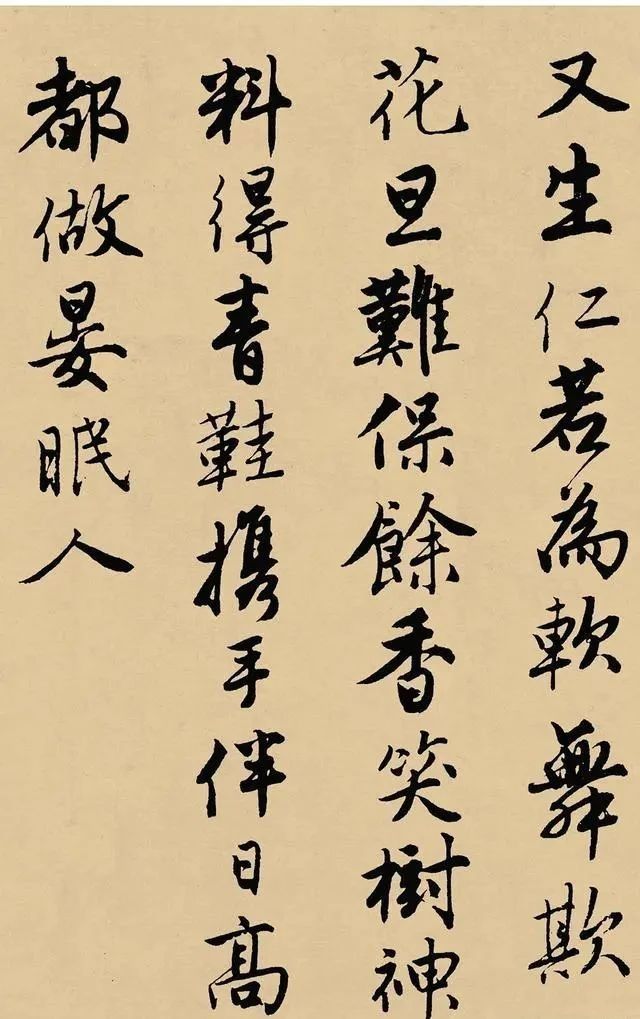 又生仁若為軟舞欺
花旦難保餘香笑樹神
料得青鞋攜手伴日高
都做晏眠人